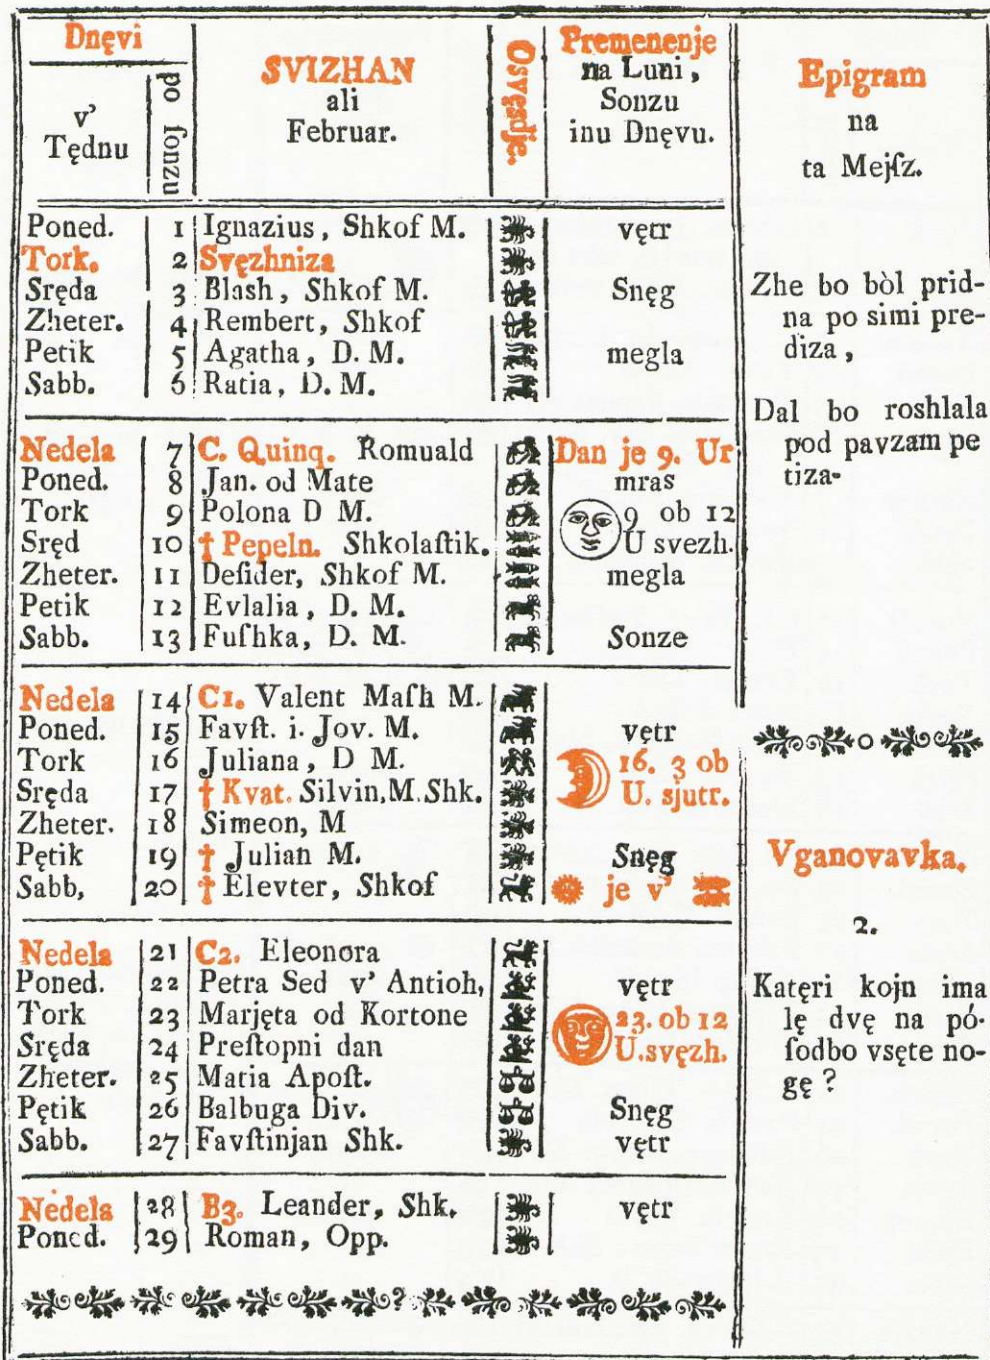 Dnęvi
v’
Tędnu
po ſonzu
SVIZHAN
ali
Februar.
Osvęsdje.
Premenenje
na Luni ,
Sonzu
inu Dnęvu.
Poned. 1 Ignazius , Shkof M. vętr
Tork. 2 Svęzhniza
Sręda 3 Blash , Shkof M. Snęg
Zheter. 4 Rembert, Shkof
Petik 5 Agatha , D. M. megla
Sabb. 6 Ratia , D. M.
Nedela 7 C. Quinq. Romuald Dan je 9. Ur
Poned. 8 Jan. od Mate mras
Tork 9 Polona D M. 9 ob 12
Sręd 10 † Pepeln. Shkolaſtik. U svezh.
Zheter. 11 Deſider, Shkof M. megla
Petik 12 Evlalia , D. M.
Sabb. 13 Fuſhka, D. M. Sonze
Nedela 14 C1. Valent Maſh M.
Poned. 15 Favſt. i. Jov. M. vętr
Tork 16 Juliana , D M. 16. 3 ob
Sręda 17 † Kvat. Silvin, M. Shk. U. sjutr.
Zheter. 18 Simeon, M
Pętik 19 † Julian M. Snęg
Sabb, 20 † Elevter, Shkof je v’
Nedela 21 C2. Eleonora
Poned. 22 Petra Sed v’ Antioh, vętr
Tork 23 Marjęta od Kortone 23. ob 12
Sręda 24 Preſtopni dan U. svęzh.
Zheter. 25 Matia Apoſt.
Pętik 26 Balbuga Div. Snęg
Sabb. 27 Favſtinjan Shk. vętr
Nedela 28 B3. Leander, Shk. vętr
Poned. 29 Roman, Opp.
Epigram
na
ta Mejſz.
Zhe bo bòl prid-
na po simi pre-
diza ,
Dal bo roshlala
pod pavzam pe
tiza-
Vganovavka.
2.
Katęri kojn ima
lę dvę na pó-
ſodbo vsęte no-
gę ?